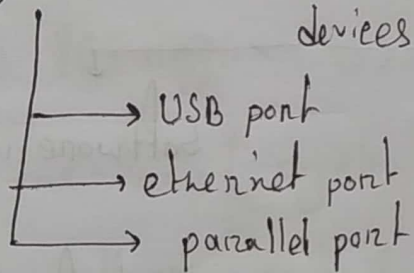 devices
USB port
ethernet port
parallel port